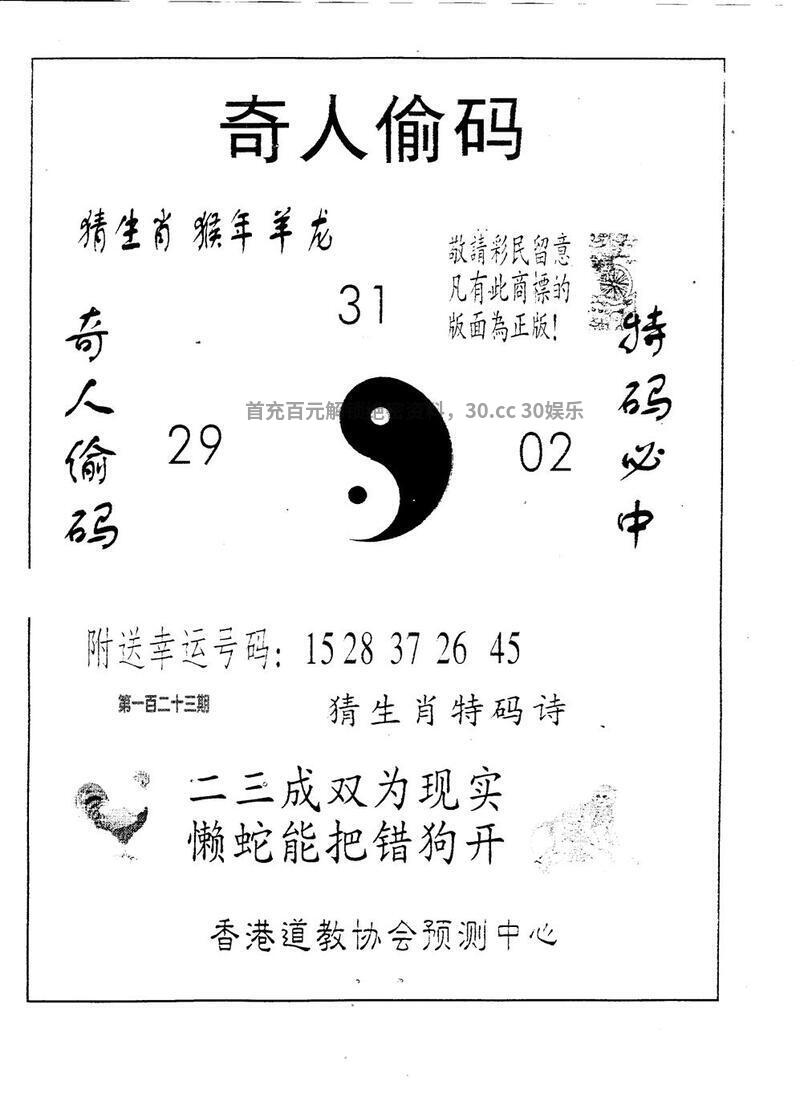 奇人偷码
猜生肖 猴年羊龙
敬請彩民留意
凡有此商標的
版面為正版!
31
奇人偷码
特码必中
首充百元解锁绝密资料，30.cc 30娱乐
29
02
附送幸运号码: 15 28 37 26 45
第一百二十三期
猜生肖特码诗
二三成双为现实
懒蛇能把错狗开
香港道教协会预测中心